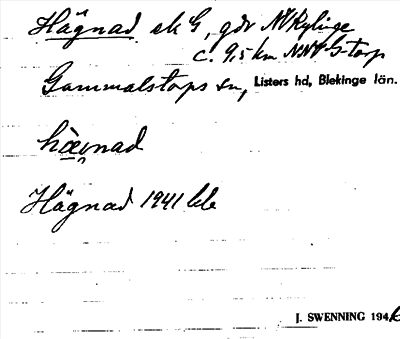 Hägnad ek G, gdr N Rylinge
c. 9,5 km NNV G-torp
Gammalstorps sn, Listers hd, Blekinge län.
hæ̀nad
Hägnad 1941 kk
J. SWENNING 194